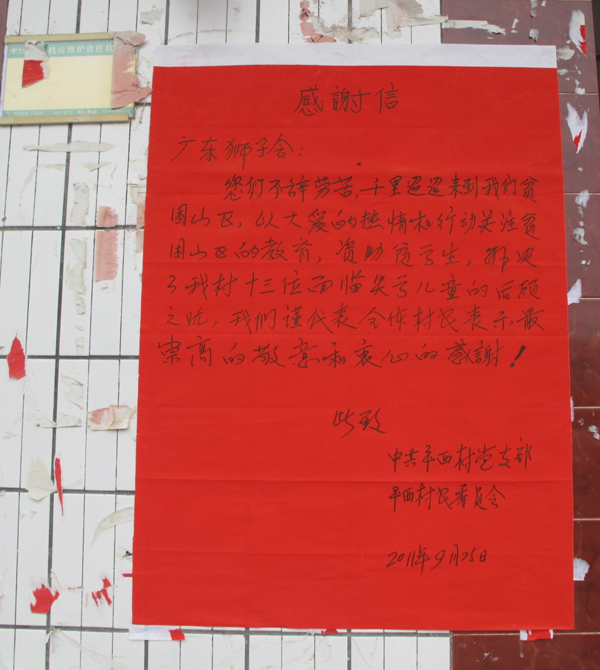 机房维护责任
感謝信
广东狮子会：
您们不辞劳苦，千里迢迢来到我们贫
困山区，以大爱的热情和行动关注贫
困山区的教育，资助贫亏生，解决
了我村十三位面临失亏儿童的后顾
之忧，我们谨代表全体村民表示最
崇高的敬意和衷心的感謝！
此致
中共平西村党支部
平西村民委员会
2011年9月25日